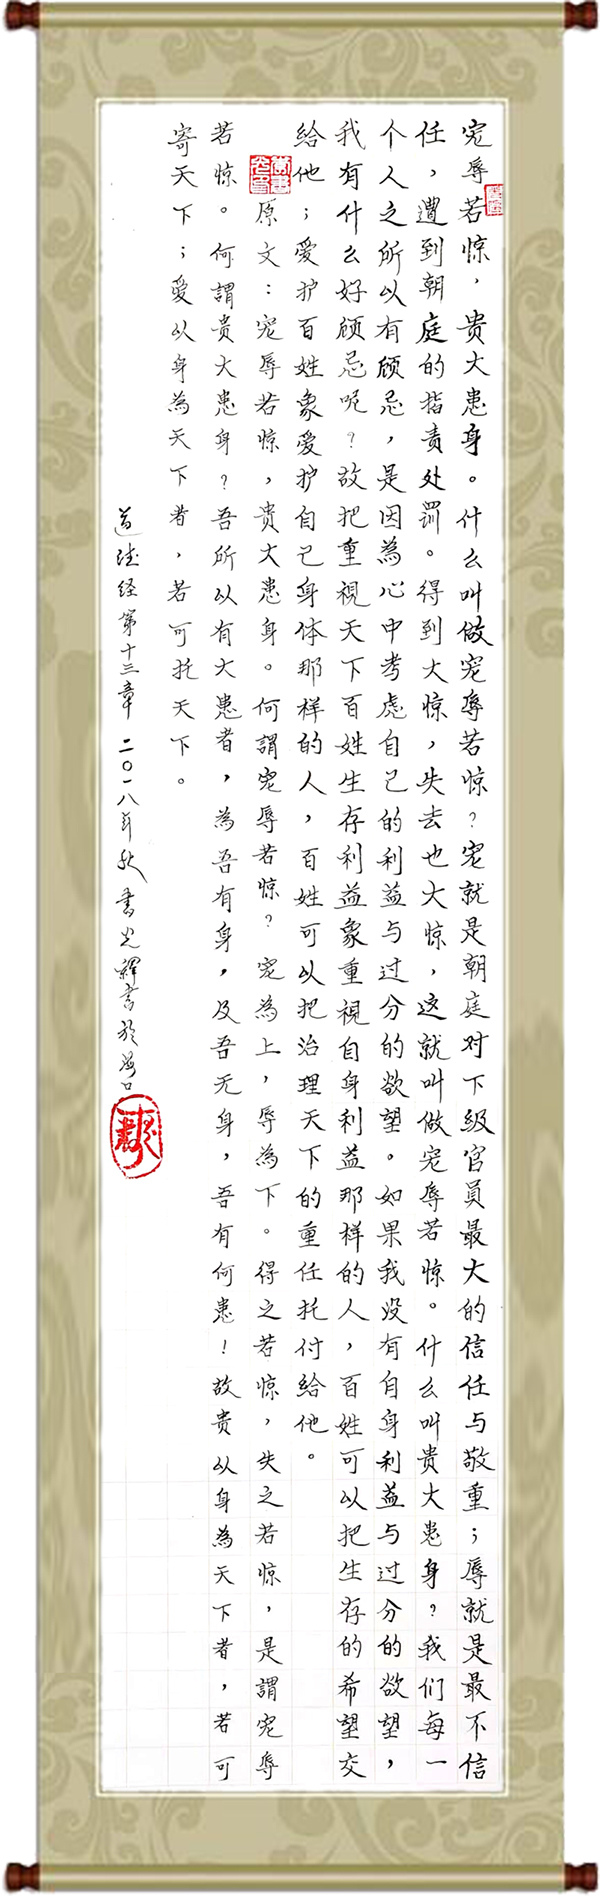 宠辱若惊，贵大患身。什么叫做宠辱若惊？宠就是朝庭对下级官員最大的信任与敬重；辱就是最不信
任，遭到朝庭的指责处罰。得到大惊，失去也大惊，这就叫做宠辱若惊。什么叫贵大患身？我们每一
个人之所以有顾忌，是因為心中考虑自己的利益与过分的欲望。如果我没有自身利益与过分的欲望，
我有什么好顾忌呢？故把重視天下百姓生存利益象重視自身利益那样的人，百姓可以把生存的希望交
给他；爱护百姓象爱护自己身体那样的人，百姓可以把治理天下的重任托付给他。
原文：宠辱若惊，贵大患身。何謂宠辱若惊？宠為上，辱為下。得之若惊，失之若惊，是謂宠辱
若惊。何謂贵大患身？吾所以有大患者，為吾有身，及吾无身，吾有何患！故贵以身為天下者，若可
寄天下；爱以身為天下者，若可托天下。
道德经第十三章 二〇一八年秋 書光釋書於海口